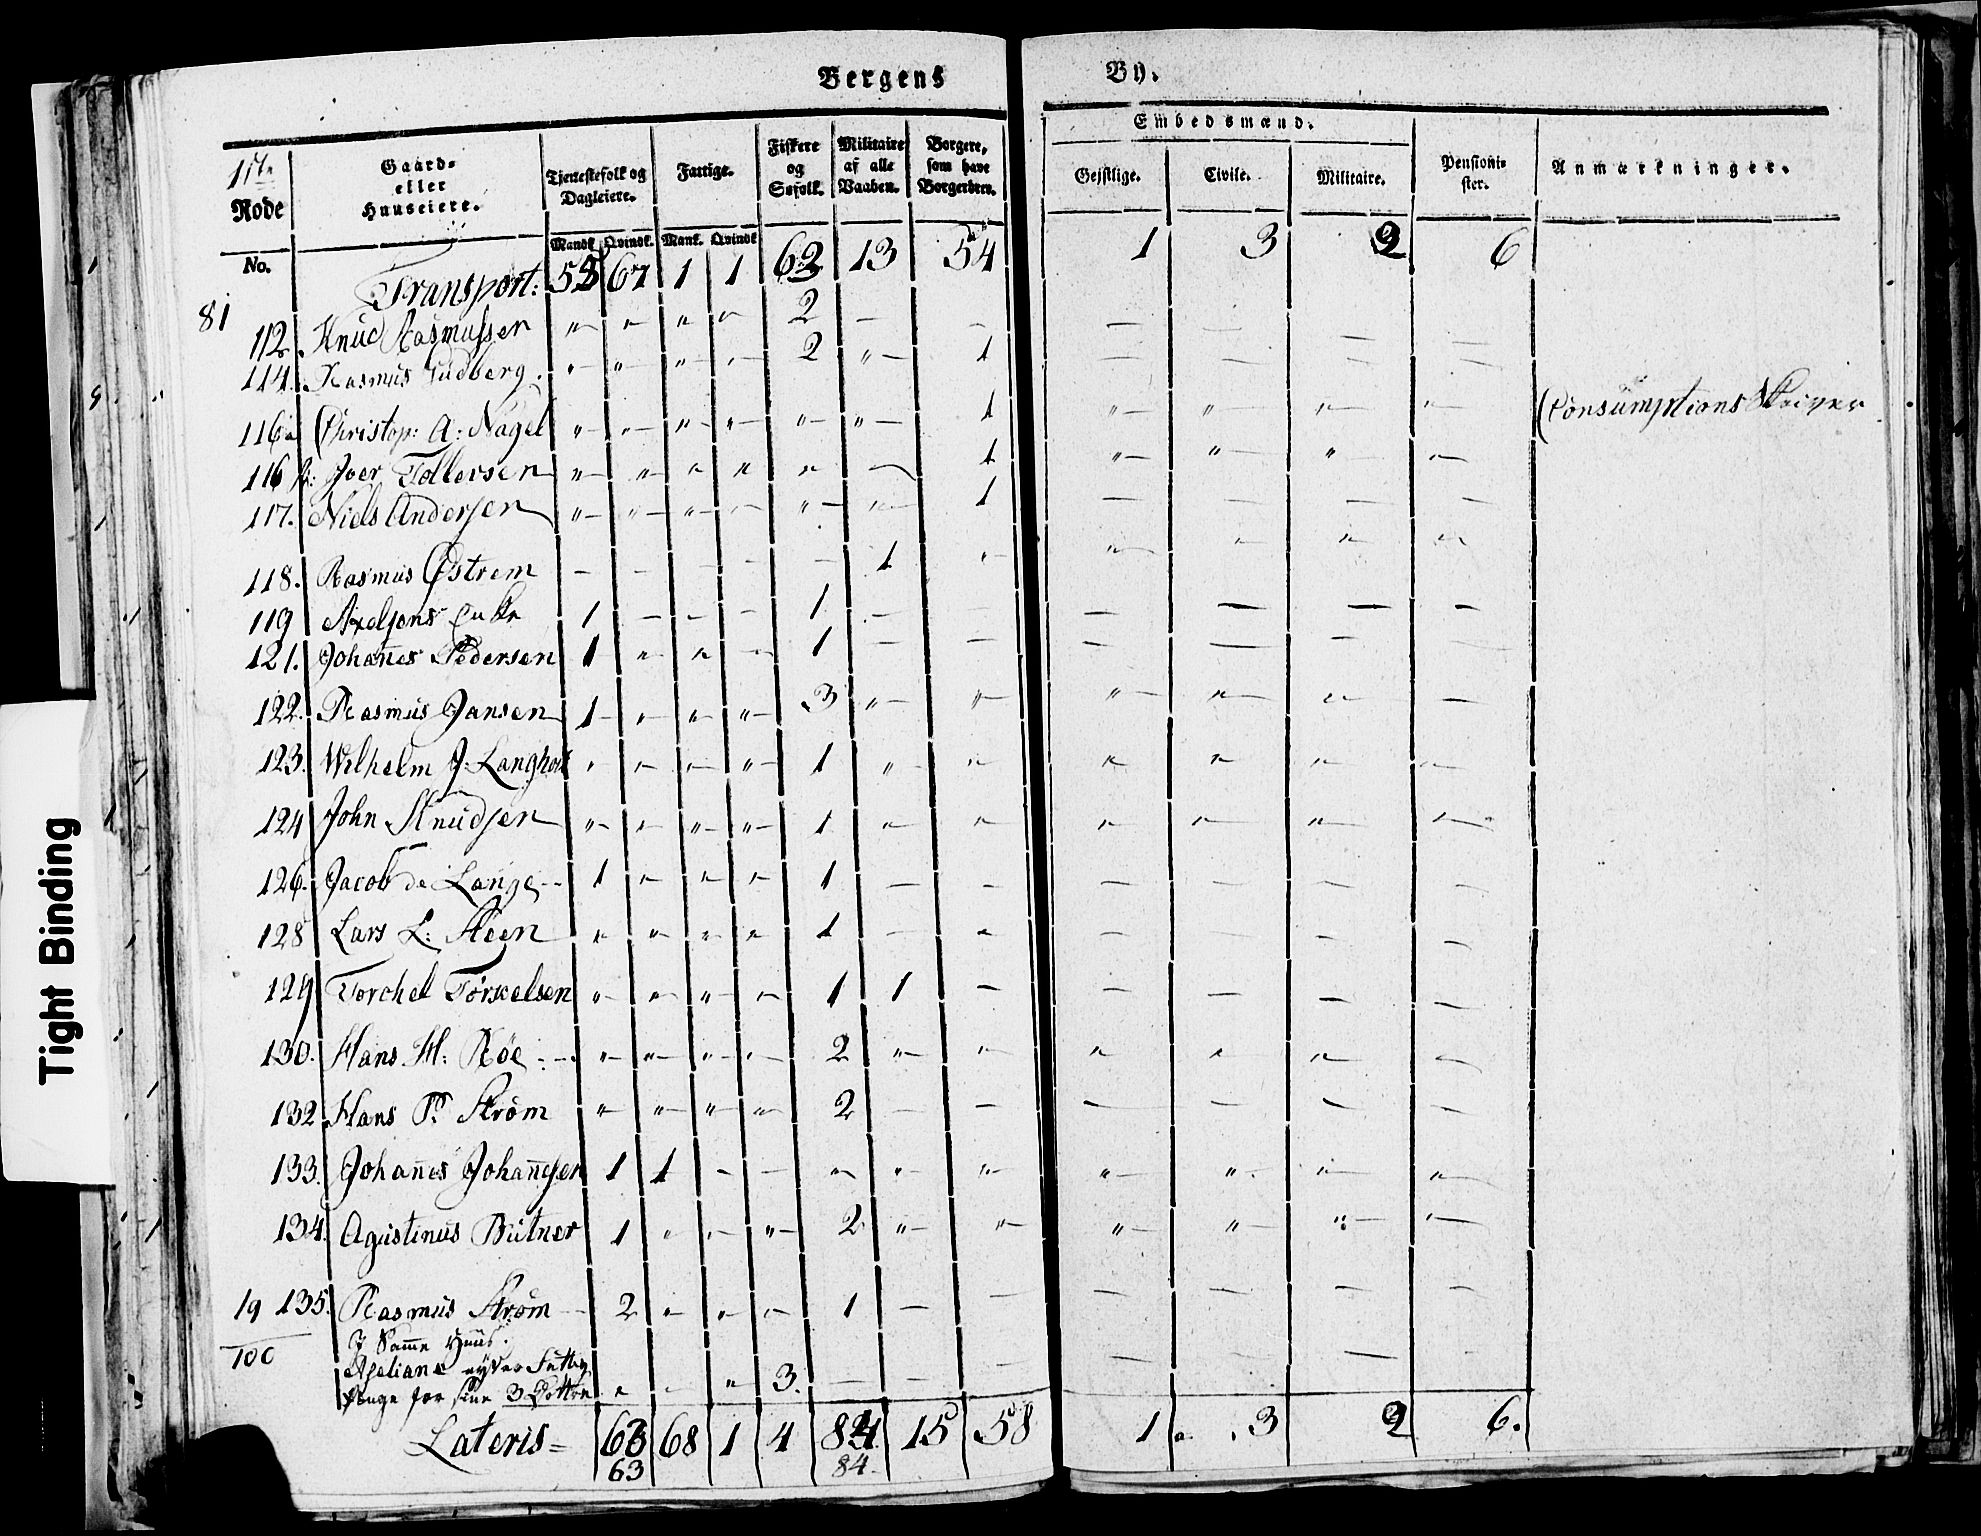 Bergens By.
Embedsmænd.
17de Rode
Gaard- eller Huuseiere.
Tjenestefolk og Dagleiere.
Fattige.
Fiskere og Søfolk.
Militaire af alle Vaaben.
Borgere, som have Borgerbrev.
Gejstlige.
Civile.
Militaire.
Pensionister.
Anmærkninger.
No. Mandk. Qvindk. Mank. Qvindk.
Transport: 53 67 1 1 62 13 54 1 3 2 6
81
112. Knud Rasmussen " " " " 2 — — — — — —
114. Rasmus Tudberg. " " " " 2 " 1 — — — —
116a Christop: A: Nagel " " " " " " 1 " " " " Consumptions Skriver
116 b: Joer Tollersen " " " " " — 1 " " " "
117. Niels Andersen " " " " " " 1 — — — —
118. Rasmus Østrem — — — — — 1 " " " " "
119 Axelsons Enke 1 — — — 1 — — — — — —
121. Johan̄es Pedersen 1 " " " 1 — — — — — —
122. Rasmus Jansen 1 " " " 3 " " " " " —
123. Wilhelm J. Langhot " " " " 1 " " " " " "
124 John Knudsen " " " " 1 " " " " " "
126. Jacob de Lange 1 " " " 1 — — — — — —
128 Lars L: Steen " " " " 1 — " — — — —
129 Torchel Torskelsen " " " " 1 1 — — — — —
130. Hans M: Røe " " " " 2 " " " " " "
132 Hans P. Strøm " " " " 2 — — — — — —
133. Johan̄es Johan̄esen 1 1 — — " " " " " " "
134. Agustinus Bütner 1 " " " 2 " " " " " "
19 135. Rasmus Strøm 2 " " " 1 — — — — — —
100
J Sam̄e Huus.
nyder Fattig
Penge for sine 3 Døttre " — " 3. — — — — — — —
Lateris = 63 68 1 4 84 15 58 1 3 2 6.
63 84
Tight Binding